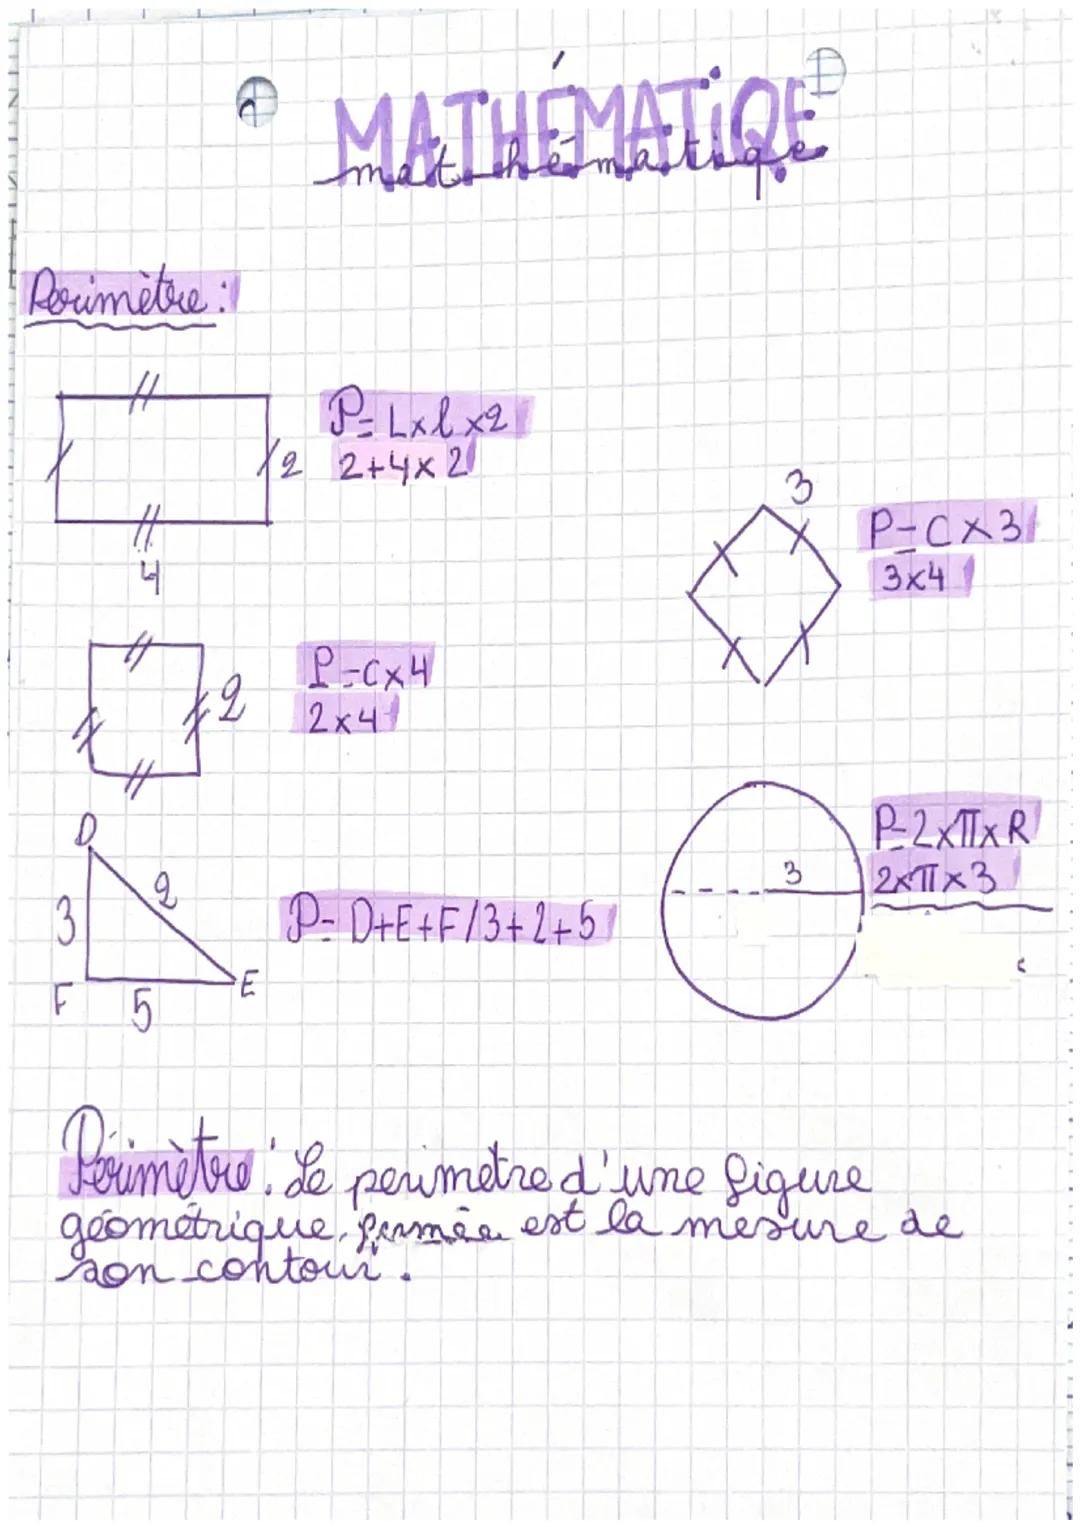 MATHÉMATIQE
mathématiqe
Périmètre :
P= L×l×2
2+4×2
2
4
3
P=C×3
3×4
P=C×4
2×4
2
D
3
2
F
5
E
P= D+E+F/3+2+5
3
P=2×π×R
2×π×3
Périmètre : Le perimetre d'une figure
géométrique fermée est la mesure de
son contour.